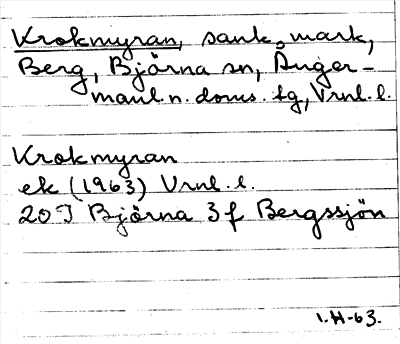 Krokmyran, sank mark,
Berg, Björna sn, Ånger-
manl. n. doms. fg, Vrnl. l.
Krokmyran
ek (1963) Vrnl. l.
20 J Björna 3 f Bergssjön
I. H-63.